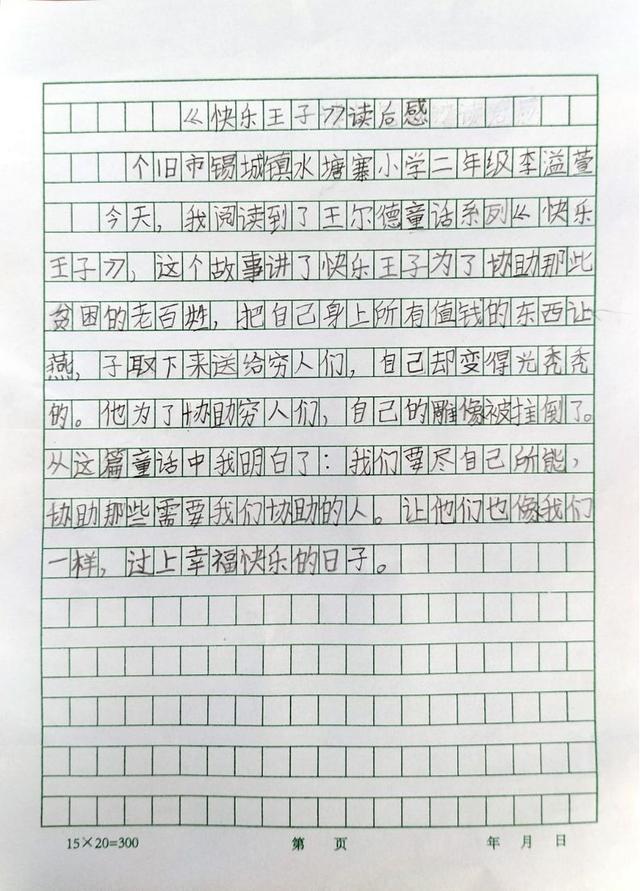 《快乐王子》读后感
个旧市锡城镇水塘寨小学二年级李溢萱
今天，我阅读到了王尔德童话系列《快乐
王子》，这个故事讲了快乐王子为了协助那些
贫困的老百姓，把自己身上所有值钱的东西让
燕，子取下来送给穷人们，自己却变得光秃秃
的。他为了协助穷人们，自己的雕像被推倒了。
从这篇童话中我明白了：我们要尽自己所能，
协助那些需要我们协助的人。让他们也像我们
一样，过上幸福快乐的日子。
15×20=300 第 页 年 月 日